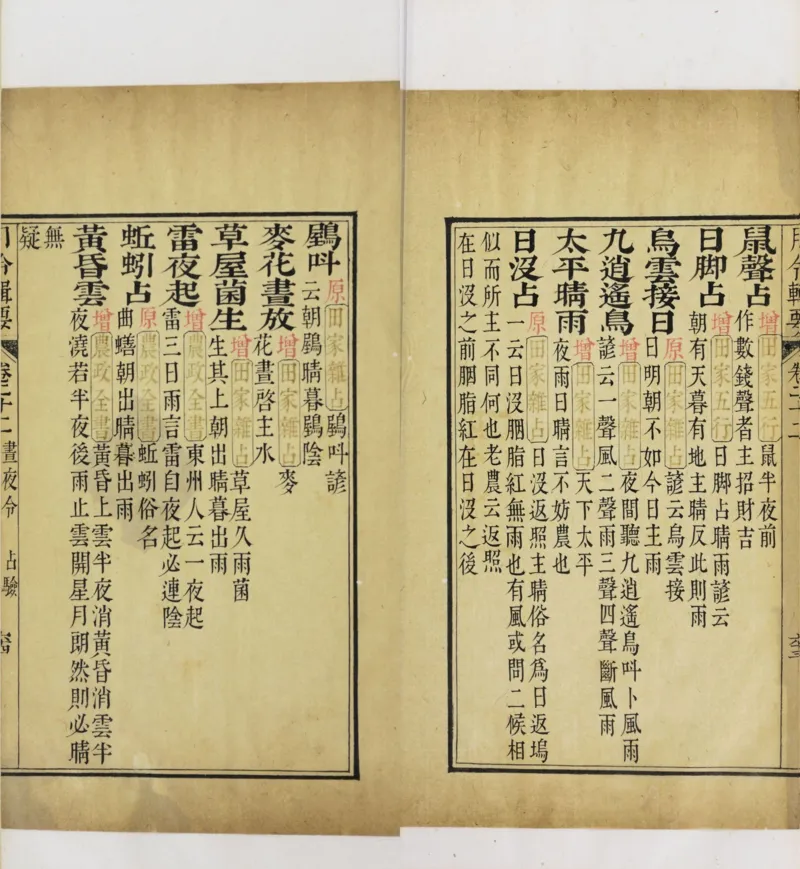 鼠聲占增田家五行鼠半夜前
作數錢聲者主招財吉
日脚占增田家五行日脚占晴雨諺云
朝有天暮有地主晴反此則雨
烏雲接日原田家雜占諺云烏雲接
日明朝不如今日主雨
九逍遙鳥增田家雜占夜間聽九逍遙鳥叫卜風雨
諺云一聲風二聲雨三聲四聲斷風雨
太平晴雨增田家雜占天下太平
夜雨日晴言不妨農也
日沒占原田家雜占日沒返照主晴俗名爲日返塢
一云日沒胭脂紅無雨也有風或問二候相
似而所主不同何也老農云返照
在日沒之前胭脂紅在日沒之後
鵶叫原田家雜占鵶叫諺
云朝鵶晴暮鵶陰
麥花晝放增田家雜占麥
花晝啓主水
草屋菌生增田家雜占草屋久雨菌
生其上朝出晴暮出雨
雷夜起增農政全書東州人云一夜起
雷三日雨言雷自夜起必連陰
蚯蚓占原農政全書蚯蚓俗名
曲蟮朝出晴暮出雨
黃昏雲增農政全書黃昏上雲半夜消黃昏消雲半
夜澆若半夜後雨止雲開星月朗然則必晴
無
疑
月令輯要
卷二十二
晝夜令
占驗